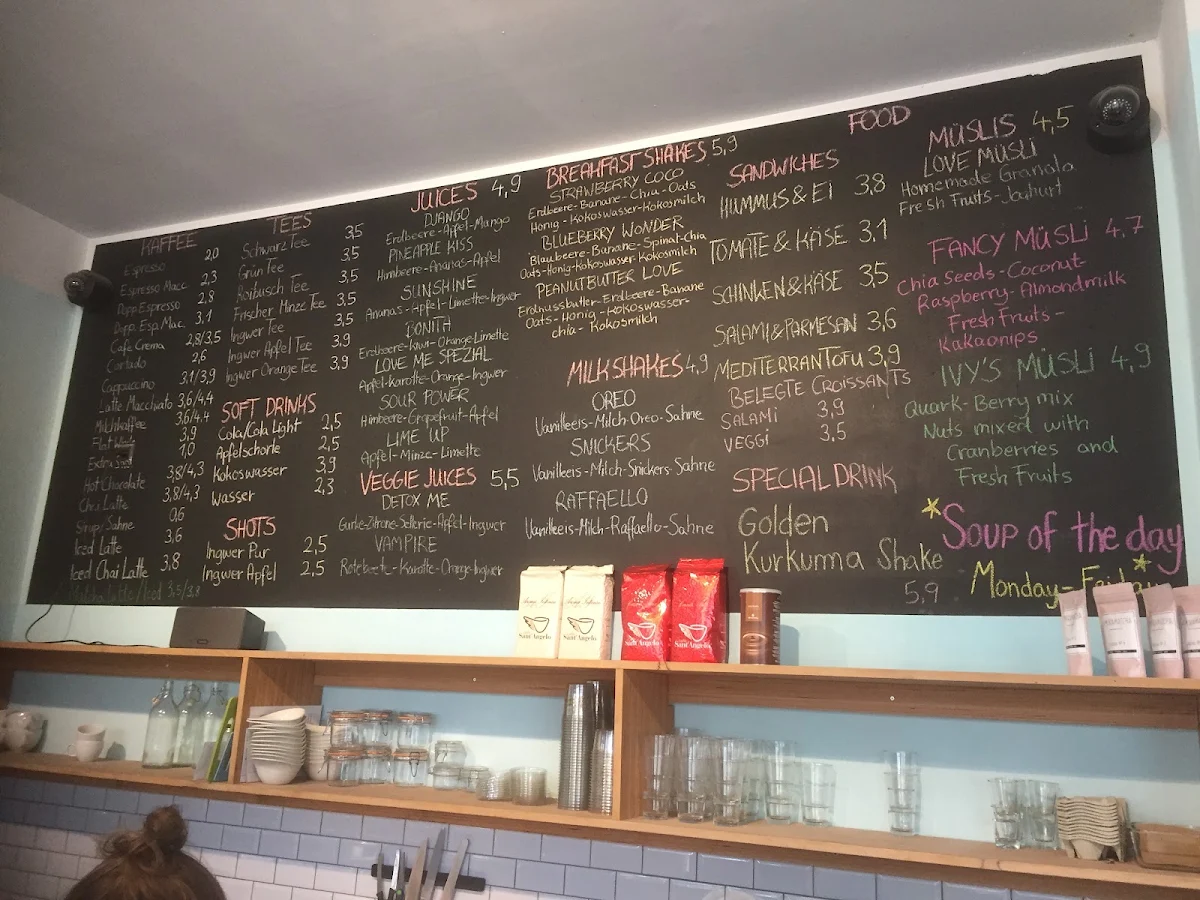 KAFFEE
Espresso 2,0
Espresso Macc. 2,3
Dopp. Espresso 2,8
Dopp. Esp. Mac. 3,1
Cafe Crema 2,8/3,5
Cortado 2,6
Cappuccino 3,1/3,9
Latte Macchiato 3,6/4,4
Milchkaffee 3,6/4,4
Flat 3,9
Extra 1,0
Hot Chocolate 3,8/4,3
Chai Latte 3,8/4,3
Sirup/Sahne 0,6
Iced Latte 3,6
Iced Chai Latte 3,8
Matcha Latte/Iced 3,5/3,8
TEES
Schwarz Tee 3,5
Grün Tee 3,5
Roibusch Tee 3,5
Frischer Minze Tee 3,5
Ingwer Tee 3,5
Ingwer Apfel Tee 3,9
Ingwer Orange Tee 3,9
SOFT DRINKS
Cola/Cola Light 2,5
Apfelschorle 2,5
Kokoswasser 3,9
Wasser 2,3
SHOTS
Ingwer Pur 2,5
Ingwer Apfel 2,5
JUICES 4,9
DJANGO
Erdbeere-Apfel-Mango
PINEAPPLE KISS
Himbeere-Ananas-Apfel
SUNSHINE
Ananas-Apfel-Limette-Ingwer
BONITA
Erdbeere-Kiwi-Orange-Limette
LOVE ME SPEZIAL
Apfel-Karotte-Orange-Ingwer
SOUR POWER
Himbeere-Grapefruit-Apfel
LIME UP
Apfel-Minze-Limette
VEGGIE JUICES 5,5
DETOX ME
Gurke-Zitrone-Sellerie-Apfel-Ingwer
VAMPIRE
Rote beete-Karotte-Orange-Ingwer
BREAKFAST SHAKES 5,9
STRAWBERRY COCO
Erdbeere-Banane-Chia-Oats
Honig-Kokoswasser-Kokosmilch
BLUEBERRY WONDER
Blaubeere-Banane-Spinat-Chia
Oats-Honig-Kokoswasser-Kokosmilch
PEANUTBUTTER LOVE
Erdnussbutter-Erdbeere-Banane
Oats-Honig-Kokoswasser-
chia-Kokosmilch
MILKSHAKES 4,9
OREO
Vanilleeis-Milch-Oreo-Sahne
SNICKERS
Vanilleeis-Milch-Snickers-Sahne
RAFFAELLO
Vanilleeis-Milch-Raffaello-Sahne
FOOD
SANDWICHES
HUMMUS & EI 3,8
TOMATE & KÄSE 3,1
SCHINKEN & KÄSE 3,5
SALAMI & PARMESAN 3,6
MEDITERRAN TOFU 3,9
BELEGTE CROISSANTS
SALAMI 3,9
VEGGI 3,5
SPECIAL DRINK
Golden
Kurkuma Shake
5,9
MÜSLIS 4,5
LOVE MÜSLI
Homemade Granola
Fresh Fruits-Joghurt
FANCY MÜSLI 4,7
Chia Seeds-Coconut-
Raspberry-Almondmilk
Fresh Fruits-
Kakaonips
IVY'S MÜSLI 4,9
Quark-Berry mix
Nuts mixed with
Cranberries and
Fresh Fruits
Soup of the day
Monday-Friday
Sant'Angelo
Sant'Angelo
Sant'Angelo
Sant'Angelo